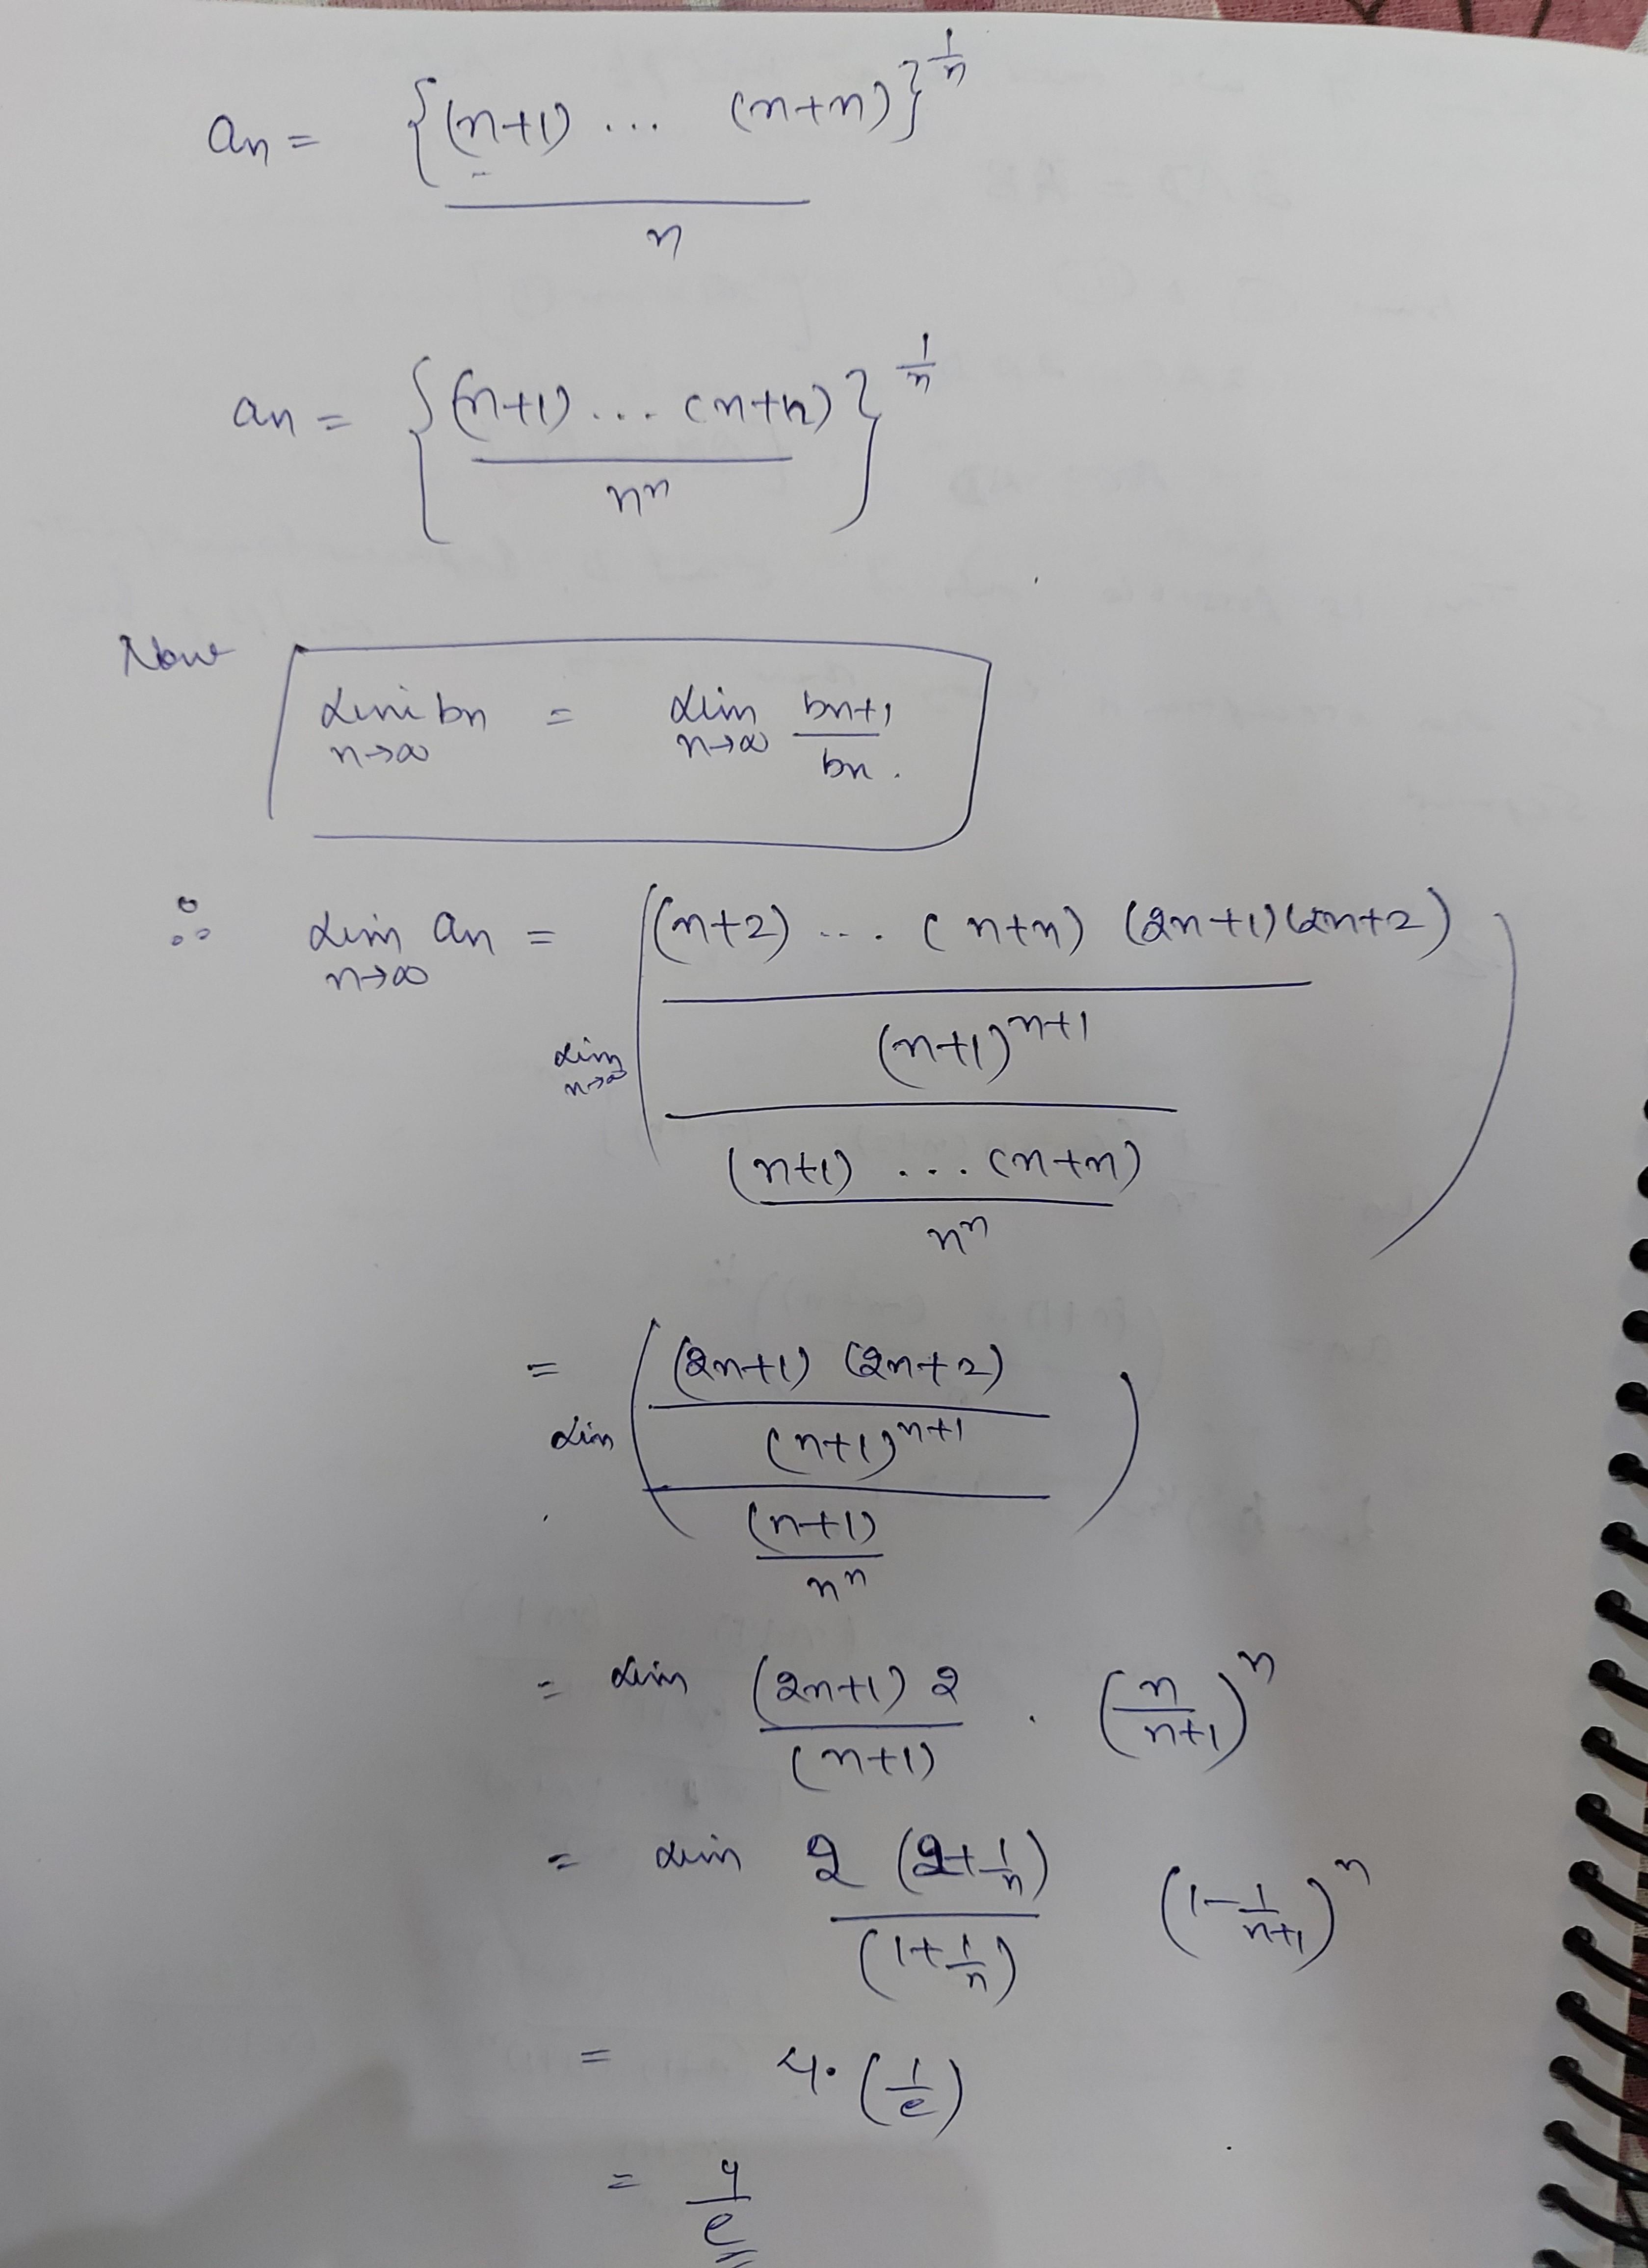 an = {(n+1) ... (n+n)}^{1/n} / n
an = {(n+1) ... (n+n) / n^n}^{1/n}
Now
lim n→∞ bn = lim n→∞ bn+1 / bn.
∴ lim n→∞ an = lim n→∞ ( ((n+2) ... (n+n) (2n+1)(2n+2) / (n+1)^{n+1}) / ((n+1) ... (n+n) / n^n) )
= lim ( ((2n+1) (2n+2) / (n+1)^{n+1}) / ((n+1) / n^n) )
= lim (2n+1) 2 / (n+1) . (n / n+1)^n
= lim 2 (2+1/n) / (1+1/n) (1-1/n+1)^n
= 4. (1/e)
= 4/e